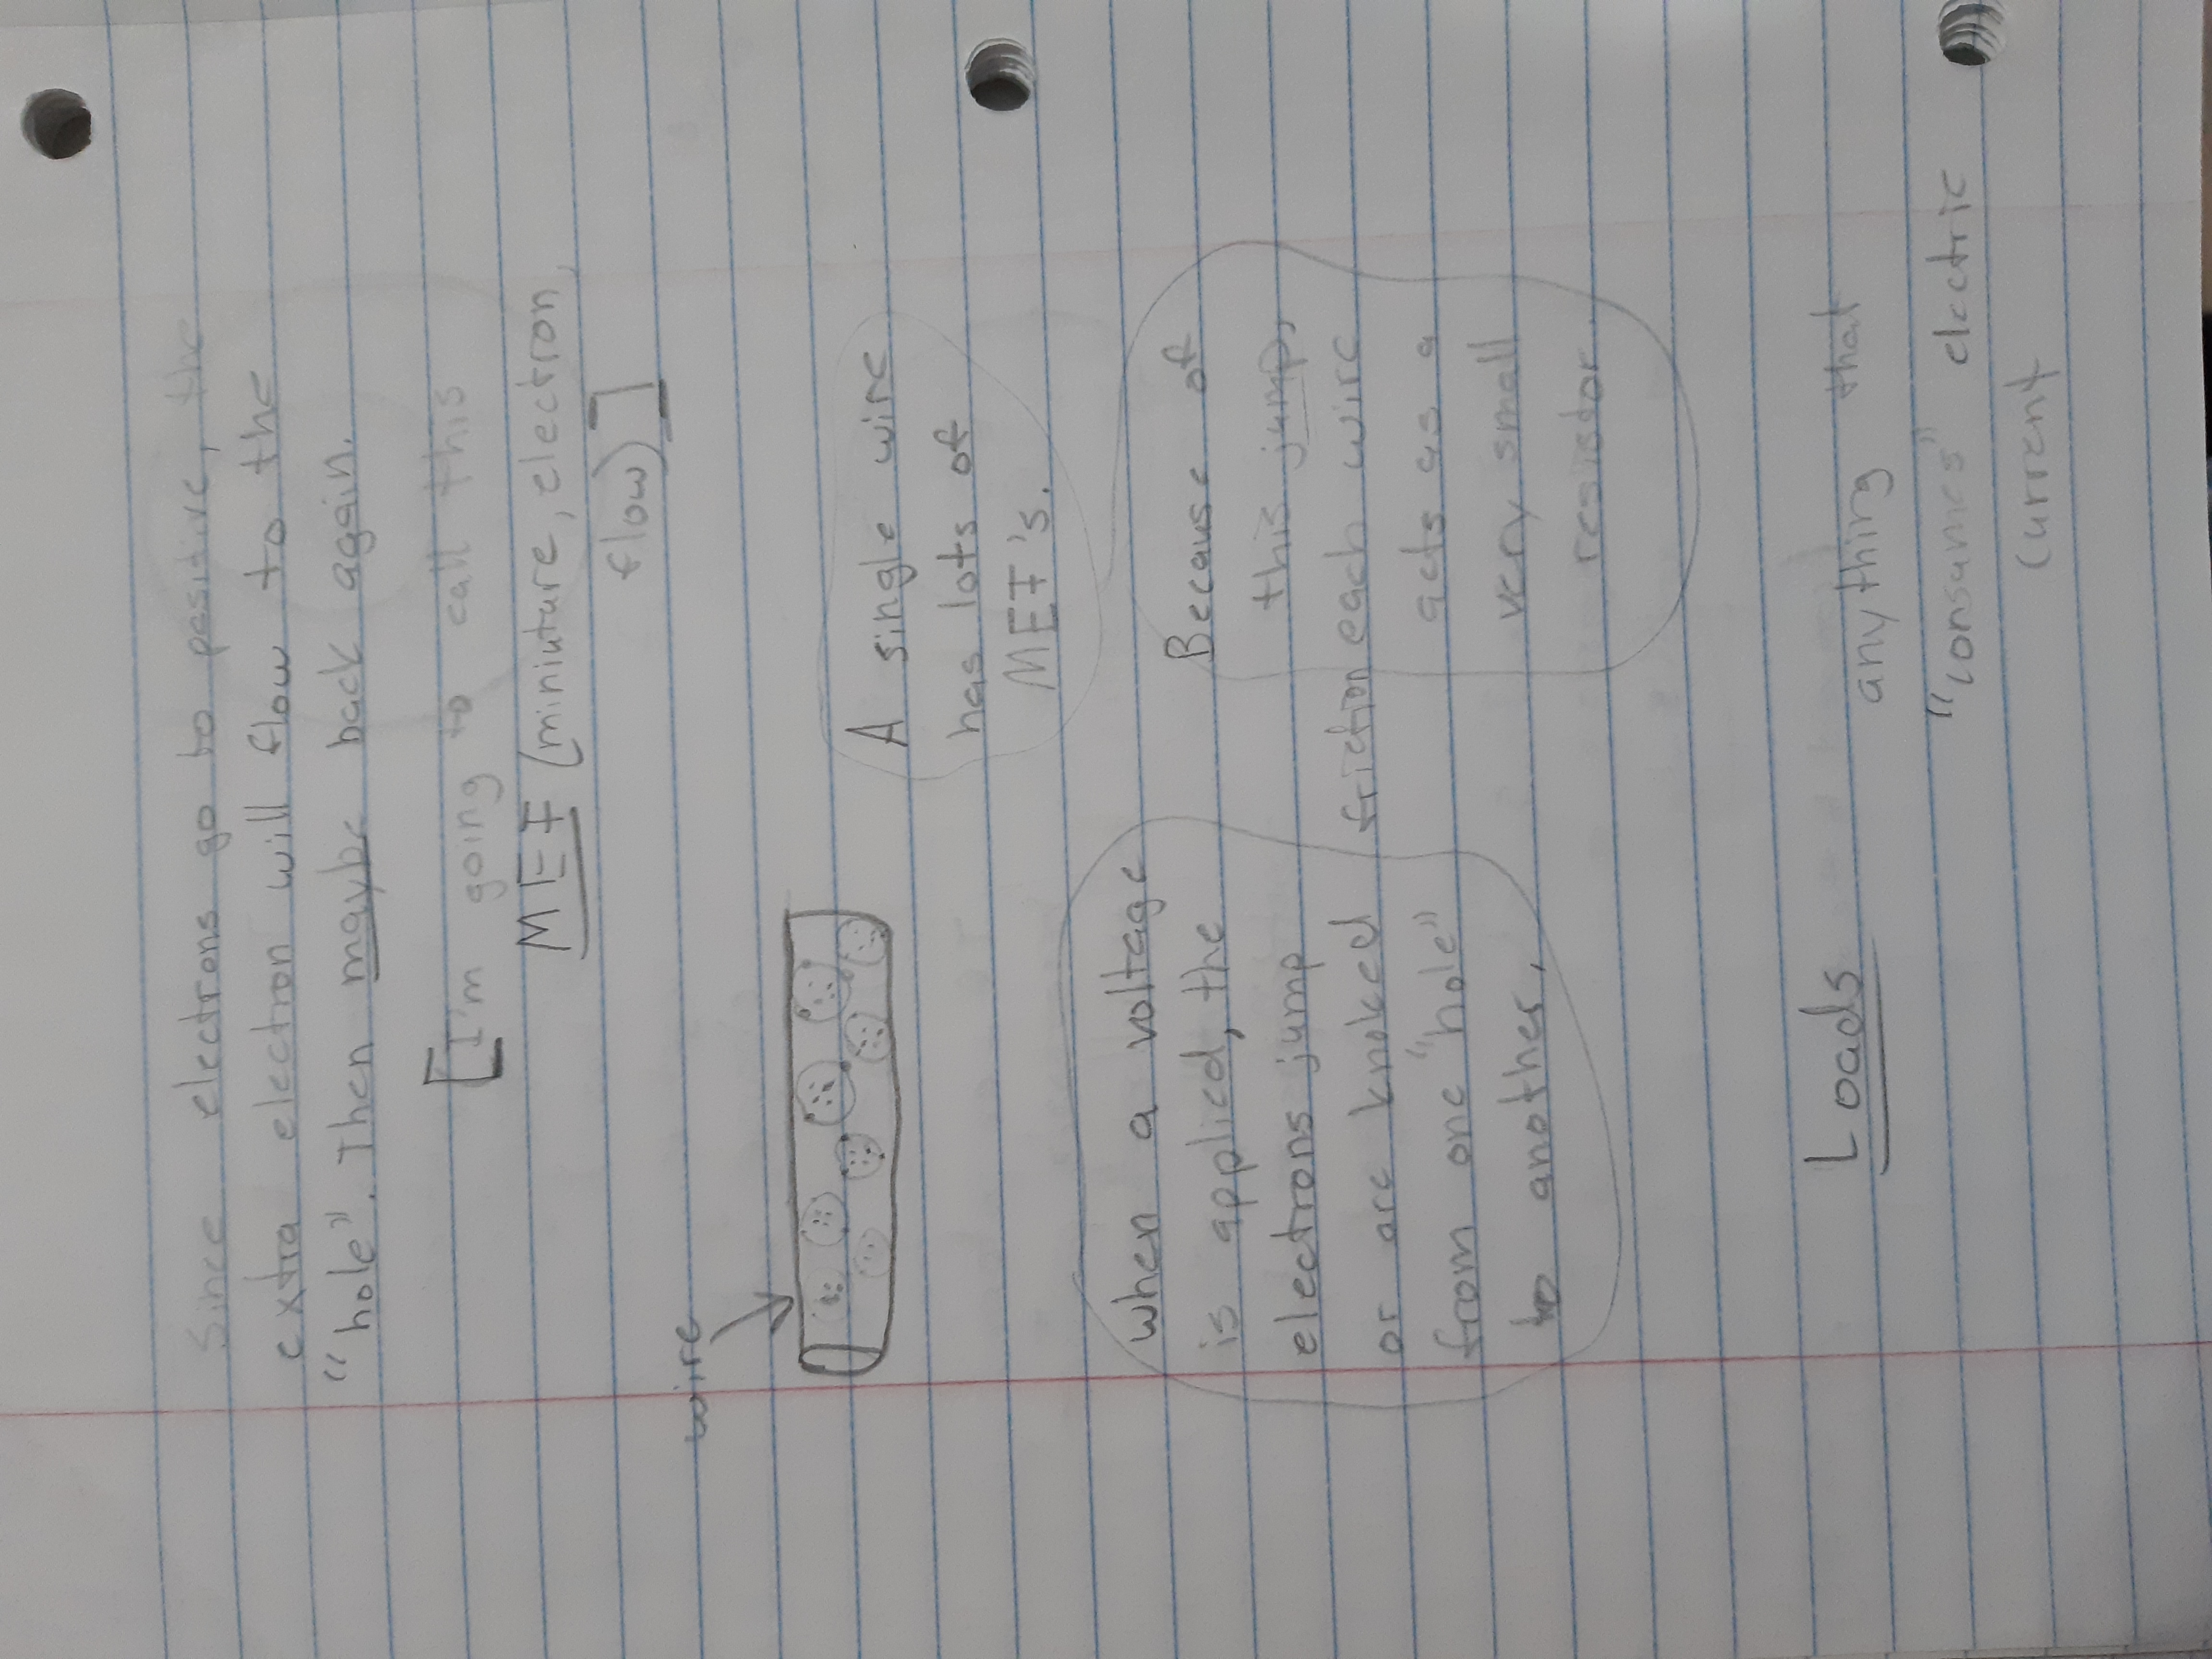 Since electrons go to positive, the
extra electron will flow to the
"hole". Then maybe back again.
[I'm going to call this
MEF (miniuture, electron,
flow)]
wire
A single wire
has lots of
MEF's.
when a voltage
is applied, the
electrons jump
or are knoked
from one "hole"
to another.
friction
Because of
this jump,
each wire
acts as a
very small
resistor.
Loads
anything that
"consumes" electric
current